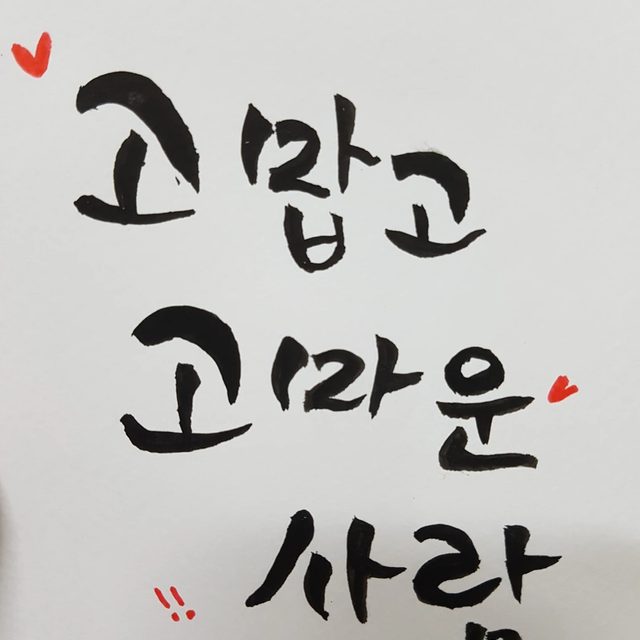 고맙고
고마운
사람
!!